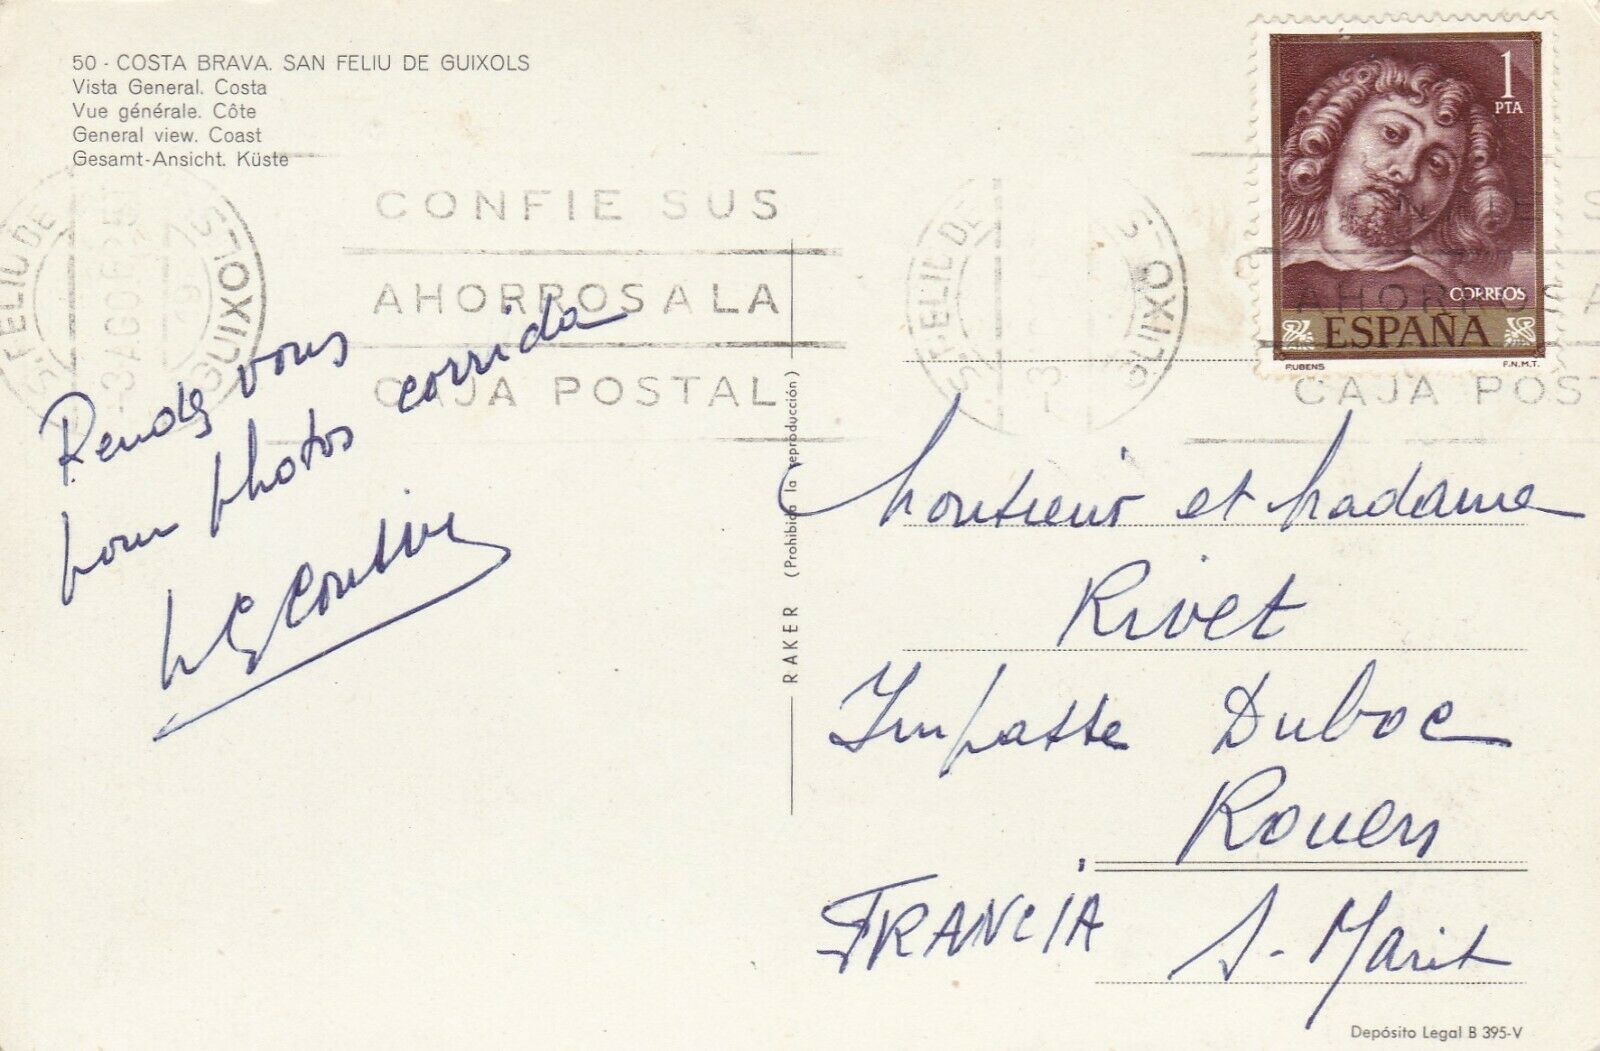 50 - COSTA BRAVA. SAN FELIU DE GUIXOLS
Vista General. Costa
Vue générale. Côte
General view. Coast
Gesamt-Ansicht. Küste
S. FELIU DE GUIXOLS
CONFIE SUS
AHORROS A LA
CAJA POSTAL
S. FELIU DE GUIXOLS
AHORROS A
CAJA POST
1
PTA
CORREOS
ESPAÑA
RUBENS
F.N.M.T.
Rendez vous
pour photos corrida
RAKER (Prohibida la reproducción)
Monsieur et Madame
Rivet
Impasse Duboc
Rouen
FRANCIA
Depósito Legal B 395-V